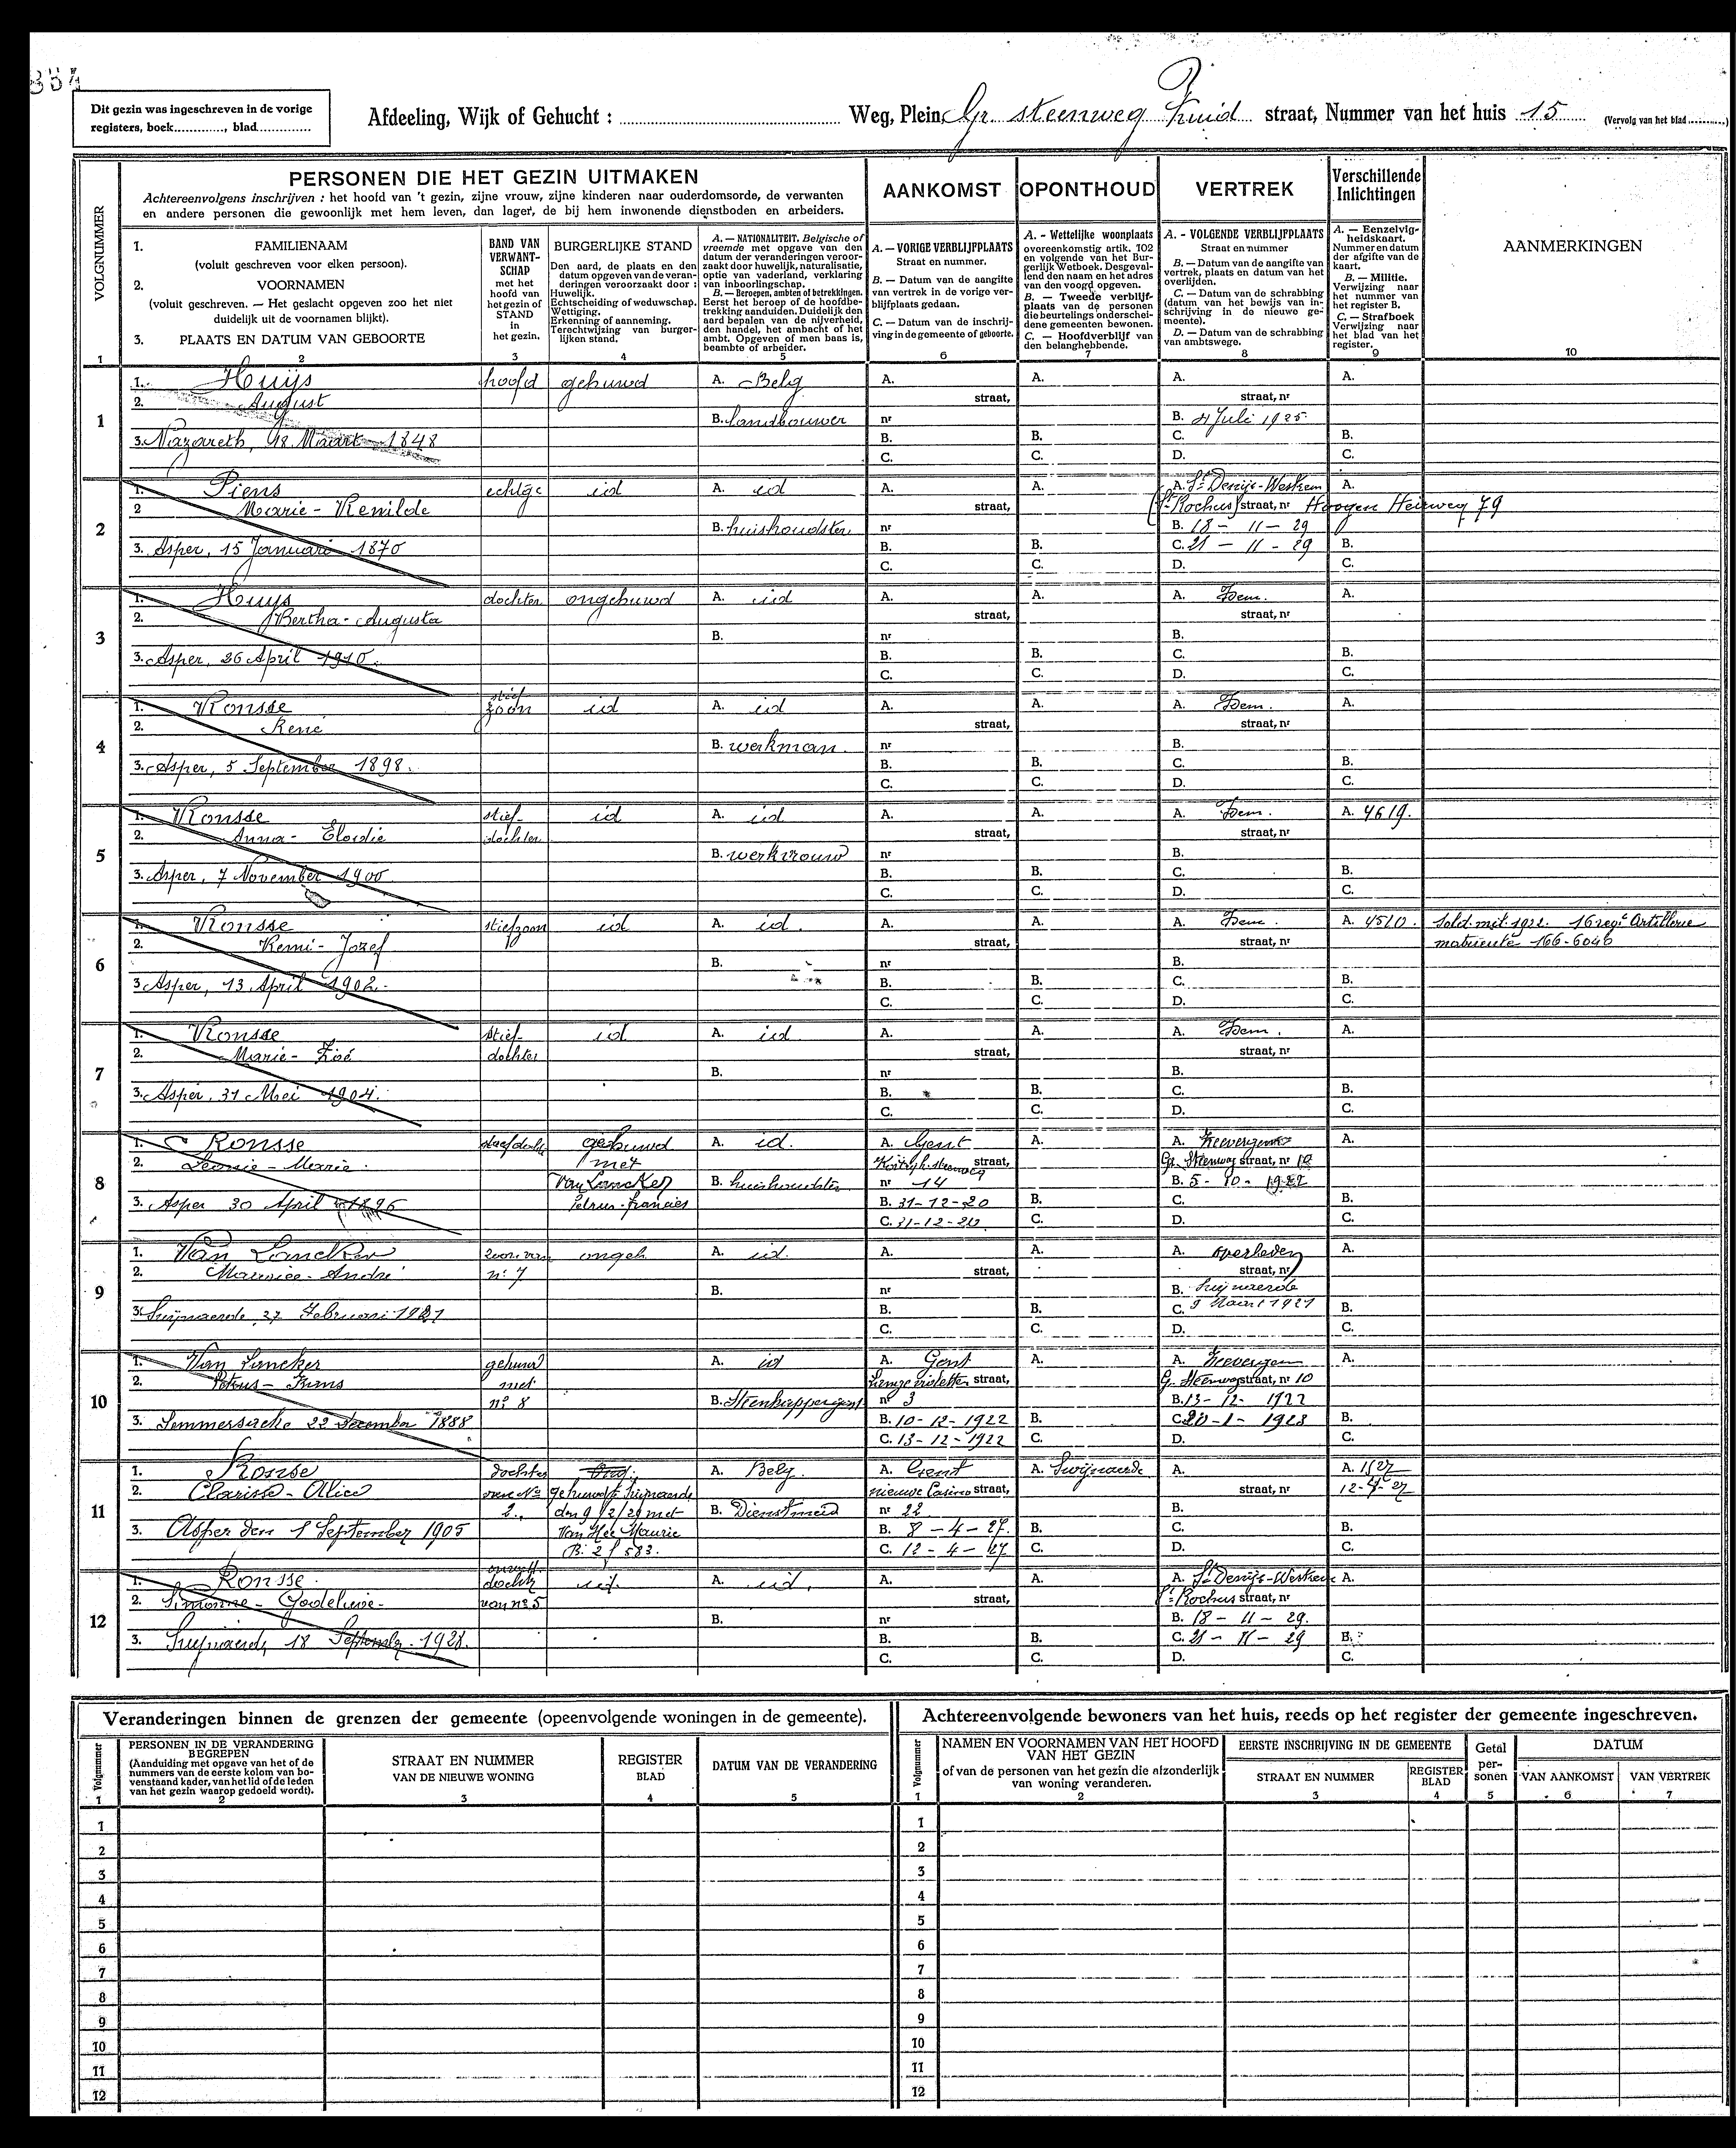 Dit gezin was ingeschreven in de vorige
registers, boek............, blad.............
Afdeeling, Wijk of Gehucht : Weg, Plein, Gr. steenweg Zuid straat, Nummer van het huis 15 (Vervolg van het blad ..........)
PERSONEN DIE HET GEZIN UITMAKEN
Achtereenvolgens inschrijven : het hoofd van 't gezin, zijne vrouw, zijne kinderen naar ouderdomsorde, de verwanten
en andere personen die gewoonlijk met hem leven, dan lager, de bij hem inwonende dienstboden en arbeiders.
AANKOMST
OPONTHOUD
VERTREK
Verschillende
Inlichtingen
AANMERKINGEN
VOLGNUMMER
1. FAMILIENAAM
(voluit geschreven voor elken persoon).
2. VOORNAMEN
(voluit geschreven. — Het geslacht opgeven zoo het niet
duidelijk uit de voornamen blijkt).
3. PLAATS EN DATUM VAN GEBOORTE
BAND VAN
VERWANT-
SCHAP
met het
hoofd van
het gezin of
STAND
in
het gezin.
BURGERLIJKE STAND
Den aard, de plaats en den
datum opgeven van de veran-
deringen veroorzaakt door :
Huwelijk.
Echtscheiding of weduwschap.
Wettiging.
Erkenning of aanneming.
Terechtwijzing van burger-
lijken stand.
A. — NATIONALITEIT. Belgische of
vreemde met opgave van den
datum der veranderingen veroor-
zaakt door huwelijk, naturalisatie,
optie van vaderland, verklaring
van inboorlingschap.
B. — Beroepen, ambten of betrekkingen.
Eerst het beroep of de hoofdbe-
trekking aanduiden. Duidelijk den
aard bepalen van de nijverheid,
den handel, het ambacht of het
ambt. Opgeven of men baas is,
beambte of arbeider.
A. — VORIGE VERBLIJFPLAATS
Straat en nummer.
B. — Datum van de aangifte
van vertrek in de vorige ver-
blijfplaats gedaan.
C. — Datum van de inschrij-
ving in de gemeente of geboorte.
A. - Wettelijke woonplaats
overeenkomstig artik. 102
en volgende van het Bur-
gerlijk Wetboek. Desgeval-
lend den naam en het adres
van den voogd opgeven.
B. — Tweede verblijf-
plaats van de personen
die beurtelings onderschei-
dene gemeenten bewonen.
C. — Hoofdverblijf van
den belanghebbende.
A. - VOLGENDE VERBLIJFPLAATS
Straat en nummer
B. — Datum van de aangifte van
vertrek, plaats en datum van het
overlijden.
C. — Datum van de schrabbing
(datum van het bewijs van in-
schrijving in de nieuwe ge-
meente).
D. — Datum van de schrabbing
van ambtswege.
A. — Eenzelvig-
heidskaart.
Nummer en datum
der afgifte van de
kaart.
B. — Militie.
Verwijzing naar
het nummer van
het register B.
C. — Strafboek
Verwijzing naar
het blad van het
register.
1 2 3 4 5 6 7 8 9 10
1
1. Huijs hoofd gehuwd A. Belg A. A. A. A.
2. August straat, straat, nr
B. landbouwer nr B. 4 Juli 1925
3. Nazareth, 18 Maart 1848 B. B. C. B.
C. C. D. C.
2
1. Piens echtge id A. id A. A. A. St Denijs-Westrem A.
2 Marie - Renilde straat, (St Rochus) straat, nr Hoogen Heirweg 79
B. huishoudster nr B. 18 - 11 - 29
3. Asper, 15 Januari 1870 B. B. C. 21 - 11 - 29 B.
C. C. D. C.
3
1. Huijs dochter ongehuwd A. id A. A. A. Idem. A.
2. Bertha - Augusta straat, straat, nr
B. nr B.
3. Asper, 26 April 1910. B. B. C. B.
C. C. D. C.
4
1. Ronsse stief zoon id A. id A. A. A. Idem. A.
2. René straat, straat, nr
B. werkman. nr B.
3. Asper, 5 September 1898. B. B. C. B.
C. C. D. C.
5
1. Ronsse stief- id A. id A. A. A. Idem. A. 4619.
2. Anna - Elodie dochter straat, straat, nr
B. werkvrouw nr B.
3. Asper, 7 November 1900 B. B. C. B.
C. C. D. C.
6
1. Ronsse stiefzoon id A. id. A. A. A. Idem. A. 4510. Sold. mil. 1922. 16 regt Artillerie
2. Remi - Jozef straat, straat, nr 166-6046
B. nr B.
3 Asper, 13 April 1902. B. B. C. B.
C. C. D. C.
7
1. Ronsse stief- id A. id A. A. A. Idem. A.
2. Marie - Zoé dochter straat, straat, nr
B. nr B.
3. Asper, 31 Mei 1904. B. B. C. B.
C. C. D. C.
8
1. Ronsse gehuwd A. id. A. Gent A. A. Zevergem A.
2. Leonie - Marie. met straat, Gr. Steenweg straat, nr 10
Van Lancker B. huishoudster nr 14 B. 5 - 10 - 1922
3. Asper 30 April 1896 Petrus-Francies B. 31-12-20 B. C. B.
C. 31-12-20. C. D. C.
9
1. Van Lancker zoon van ongeh A. id. A. A. A. overleden A.
2. Maurice - André n: 7 straat, straat, nr
B. nr B. Swijnaerde
3. Swijnaerde, 27 Februari 1921 B. B. C. 9 Maart 1921 B.
C. C. D. C.
10
1. Van Lancker gehuwd A. id A. Gent A. A. Zevergem A.
2. Petrus - Frans met straat, Gr. Steenweg straat, nr 10
n: 8 B. nr 3 B. 13 - 12 - 1922
3. Semmersaeke 22 December 1888 B. 10 - 12 - 1922 B. C. 20 - 1 - 1923 B.
C. 13 - 12 - 1922 C. D. C.
11
1. Ronsse dochter Ong. A. Belg. A. Gent A. Swijnaerde A. A. 1527
2. Clarisse - Alice van No gehuwd te Swijnaerde nieuwe Casino straat, straat, nr 12-4-27
2. den 9/2/29 met B. Dienstmeid nr 22 B.
3. Asper den 1 September 1905 Van Hee Maurie B. 8 - 4 - 27. B. C. B.
B: 2 f 583. C. 12 - 4 - 27 C. D. C.
12
1. Ronsse. onwett. dochter id. A. id. A. A. A. St Denijs-Westrem A.
2. Simonne - Godelieve - van no 5 straat, St Rochus straat, nr
B. nr B. 18 - 11 - 29.
3. Swijnaerde, 18 September 1928. B. B. C. 21 - 11 - 29 B.
C. C. D. C.
Veranderingen binnen de grenzen der gemeente (opeenvolgende woningen in de gemeente).
Volgnummer
PERSONEN IN DE VERANDERING
BEGREPEN
(Aanduiding met opgave van het of de
nummers van de eerste kolom van bo-
venstaand kader, van het lid of de leden
van het gezin waarop gedoeld wordt).
STRAAT EN NUMMER
VAN DE NIEUWE WONING
REGISTER
BLAD
DATUM VAN DE VERANDERING
1 2 3 4 5
1
2
3
4
5
6
7
8
9
10
11
12
Achtereenvolgende bewoners van het huis, reeds op het register der gemeente ingeschreven.
Volgnummer
NAMEN EN VOORNAMEN VAN HET HOOFD
VAN HET GEZIN
of van de personen van het gezin die afzonderlijk
van woning veranderen.
EERSTE INSCHRIJVING IN DE GEMEENTE
STRAAT EN NUMMER
REGISTER
BLAD
Getal
per-
sonen
DATUM
VAN AANKOMST
VAN VERTREK
1 2 3 4 5 6 7
1
2
3
4
5
6
7
8
9
10
11
12